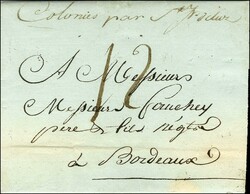 Colonies par
12
A Messieurs
Messieurs Cauchey
pere & fils négts
à Bordeaux